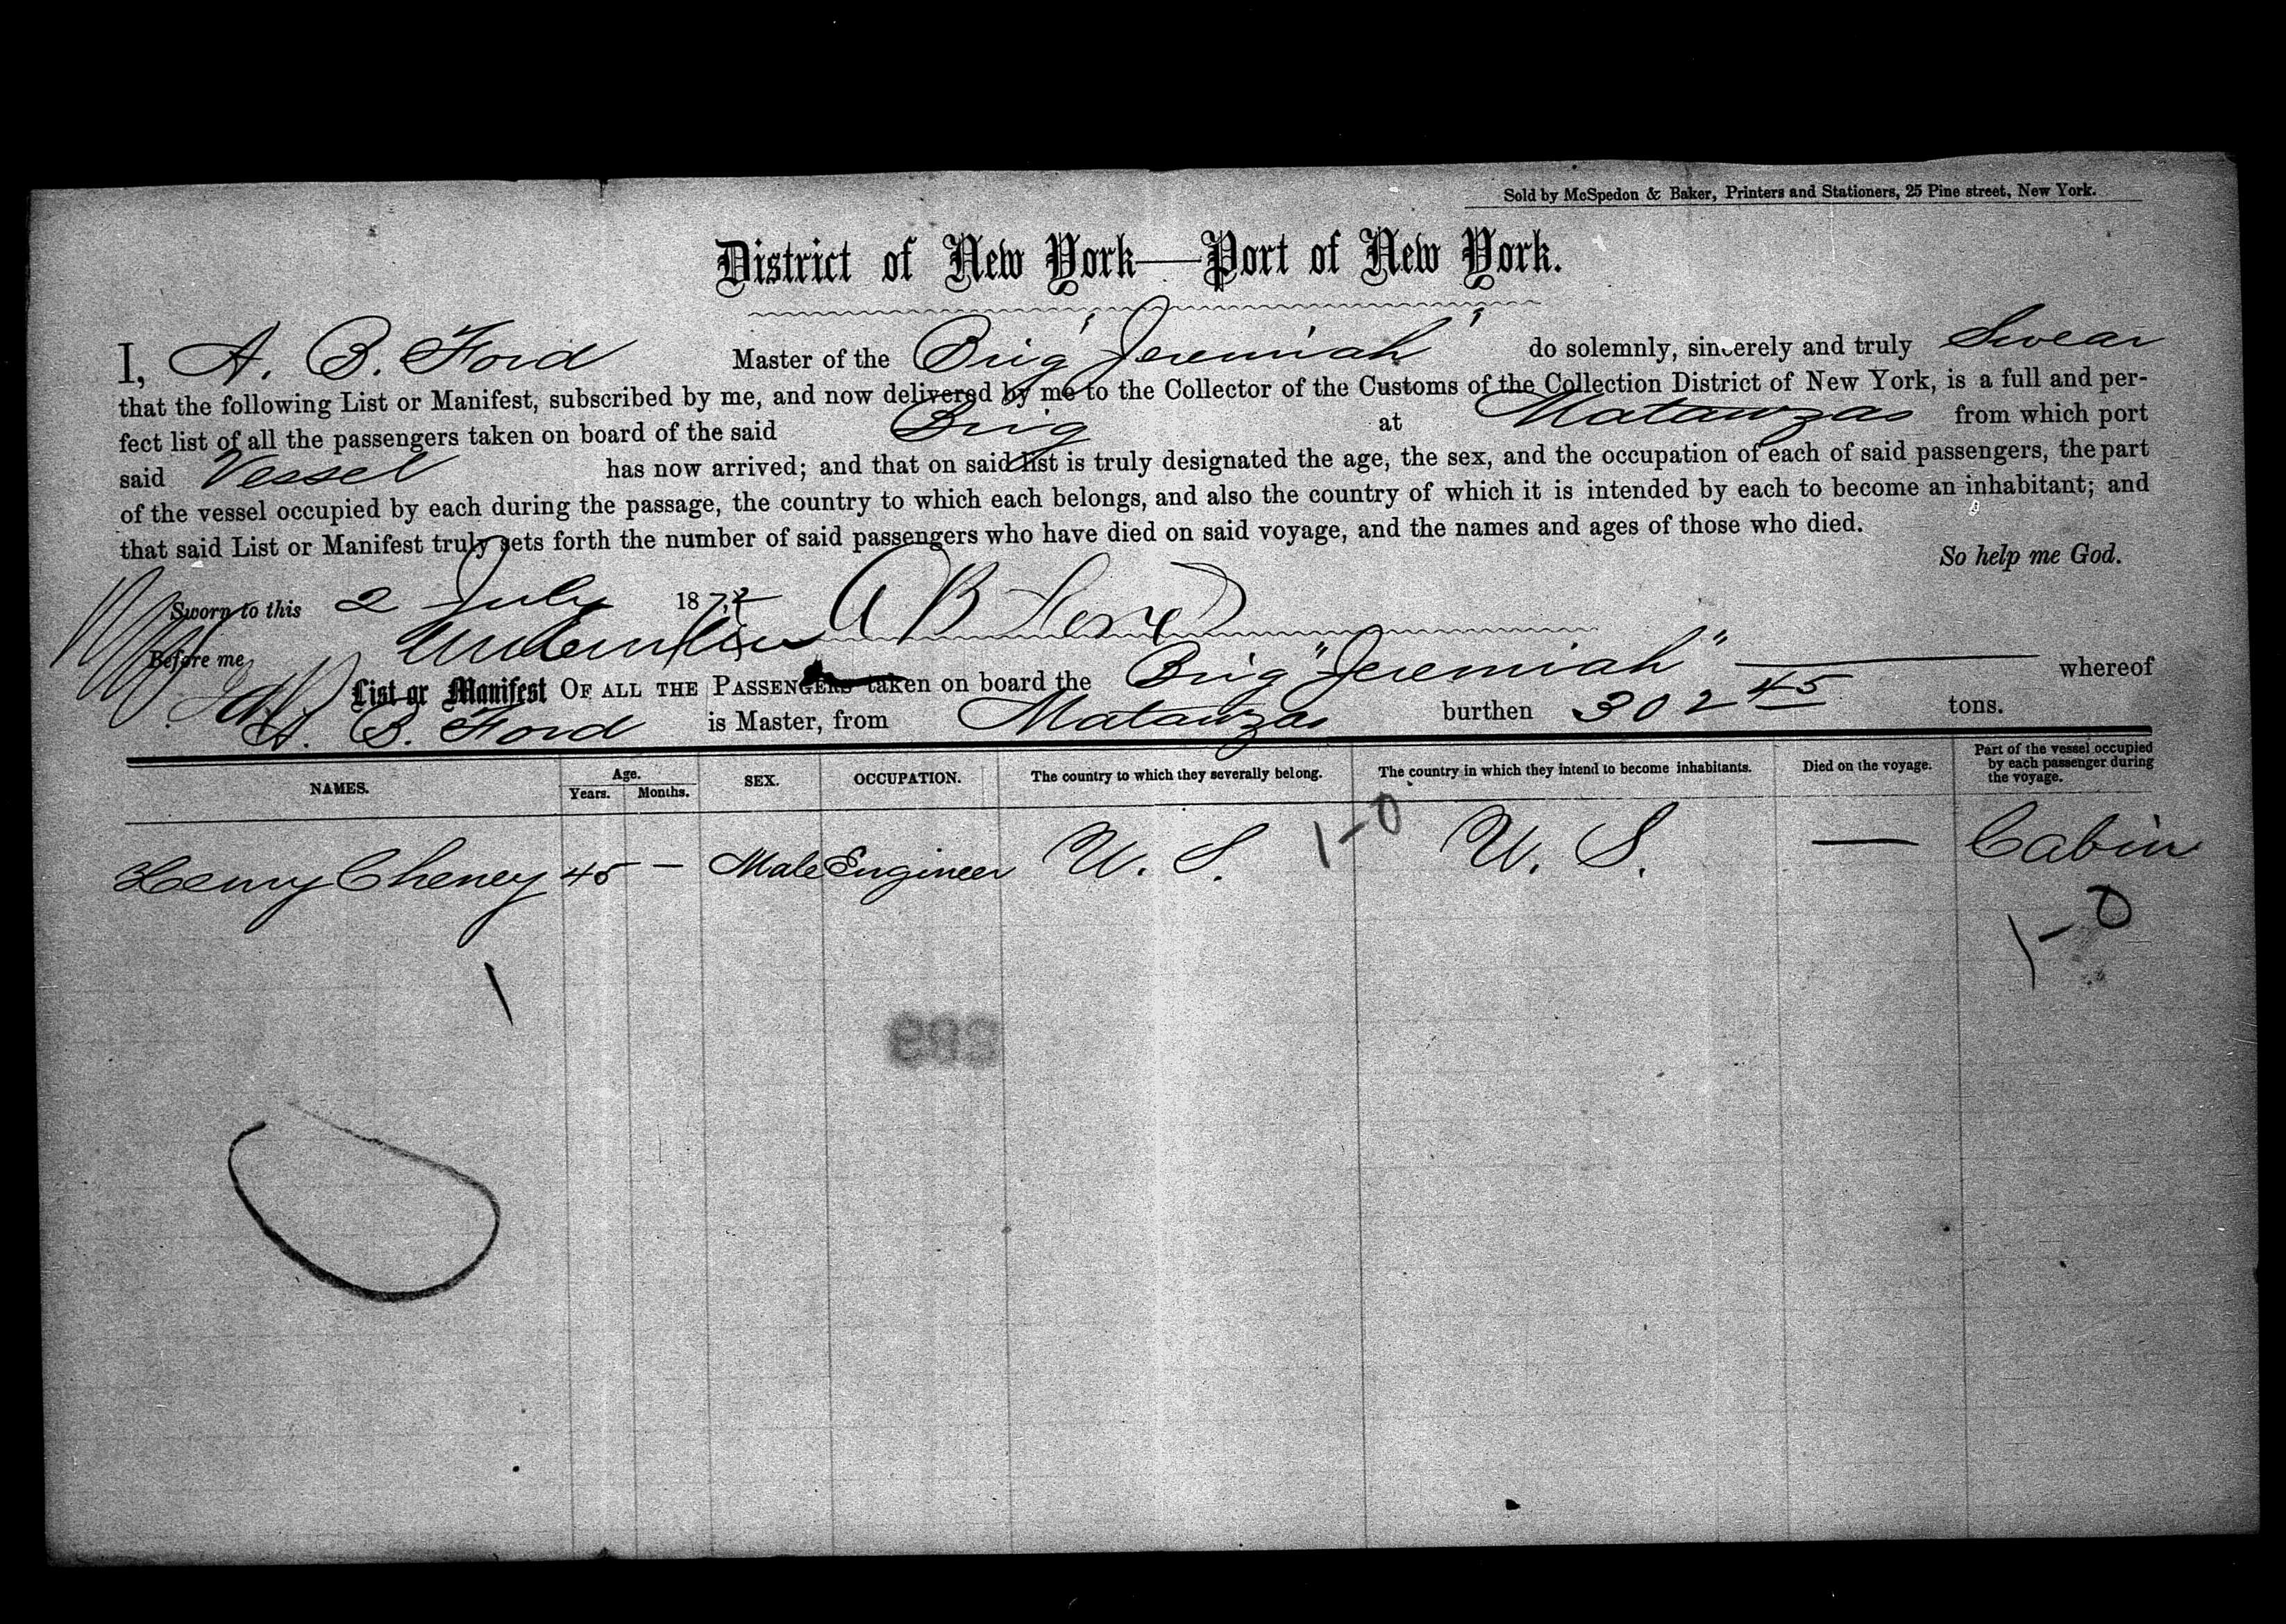 Sold by McSpedon & Baker, Printers and Stationers, 25 Pine street, New York.
District of New York—Port of New York.
I, A. B. Ford Master of the Brig "Jeremiah" do solemnly, sincerely and truly Swear
that the following List or Manifest, subscribed by me, and now delivered by me to the Collector of the Customs of the Collection District of New York, is a full and per-
fect list of all the passengers taken on board of the said Brig at Matanzas from which port
said Vessel has now arrived; and that on said list is truly designated the age, the sex, and the occupation of each of said passengers, the part
of the vessel occupied by each during the passage, the country to which each belongs, and also the country of which it is intended by each to become an inhabitant; and
that said List or Manifest truly sets forth the number of said passengers who have died on said voyage, and the names and ages of those who died.
So help me God.
Sworn to this 2 July 1872 A B Ford
Before me
List or Manifest OF ALL THE PASSENGERS taken on board the Brig "Jeremiah" whereof
A. B. Ford is Master, from Matanzas burthen 302 45 tons.
NAMES. Age. Years. Months. SEX. OCCUPATION. The country to which they severally belong. The country in which they intend to become inhabitants. Died on the voyage. Part of the vessel occupied by each passenger during the voyage.
Henry Cheney 45 — Male Engineer U. S. 1-0 U. S. — Cabin
1-0
1